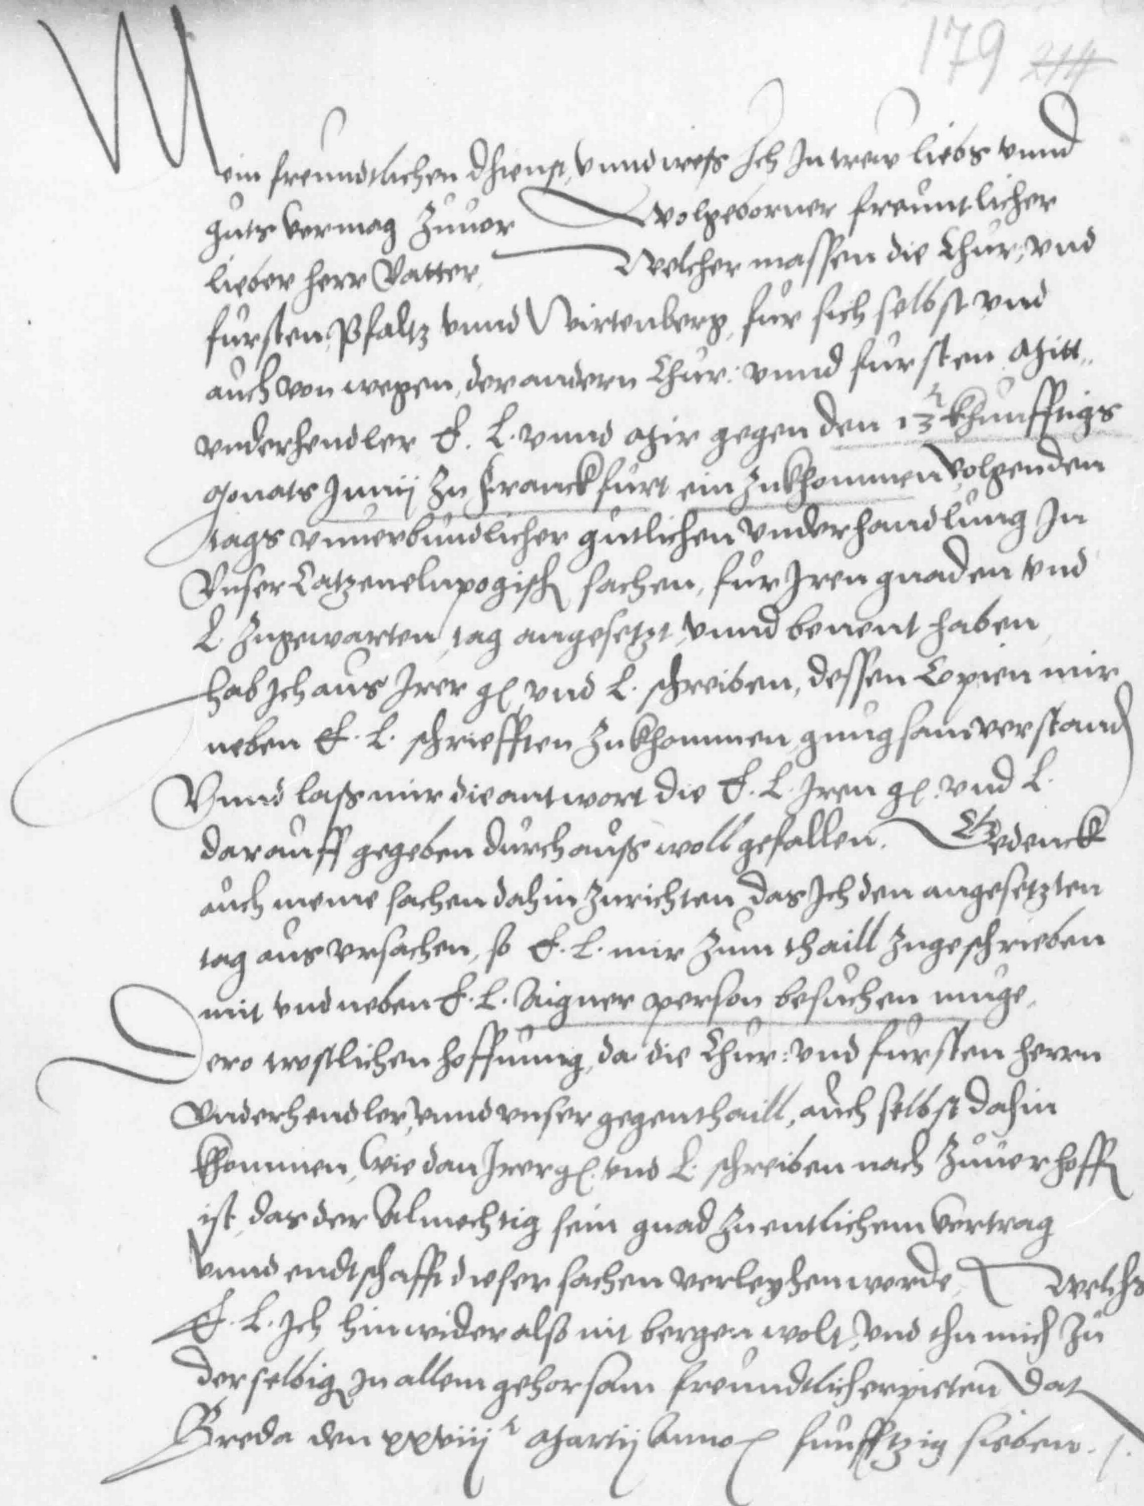 179 214
Mein freundtlichen dhienst, vnnd wess Ich In trew liebs vnnd
guts vermag Zuuor Wolgeborner freuntlicher
lieber herr Vatter, Welcher massen die Chur: vnd
fursten, Pfaltz vnnd Wirtenberg, fur sich selbst vnd
auch von wegen, der andern Chur: vnnd fursten Mitt,,
vnderhendler E. L. vnnd Mir gegen den 13t khunfftigs
Monats Junij Zu Franckfurt ein Zukhommen, volgenden
tags vnuerbundlicher gutlichen vnderhandlung In
Vnser Catzenelnpogisch sachen, fur Iren gnaden vnd
L. Zugewarten, tag angesetzt, vnnd benent haben,
hab Ich aus Irer g. vnd L. schreiben, dessen Copien mir
neben E. L. schriefften Zukhommen, gnugsam verstand
Vnnd lass mir die antwort die E. L. Iren g. vnd L.
darauff gegeben durchauss woll gefallen. Gedenck
auch meine sachen dahin Zurichten, das Ich den angesetzten
tag aus vrsachen, so E. L. mir Zum thaill Zugeschrieben
mit vnd neben E. L. Aigner person besuchen muge,
Dero trostlichen hoffnung, da die Chur: vnd fursten herrn
vnderhendler, vnnd vnser gegenthaill, auch selbst dahin
khommen, wie dan Irer g. vnd L. schreiben nach Zuuerhoff
ist, das der Almechtig sein gnad Zu entlichem vertrag
vnnd endtschafft dieser sachen verleyhen werde, Welchs
E. L. Ich hinwider also nit bergen wolt, vnd thu mich Zu
derselbig In allem gehorsam freundtlich erpieten Dat
Breda den xxviijt Martij Anno funfftzig sieben ./.